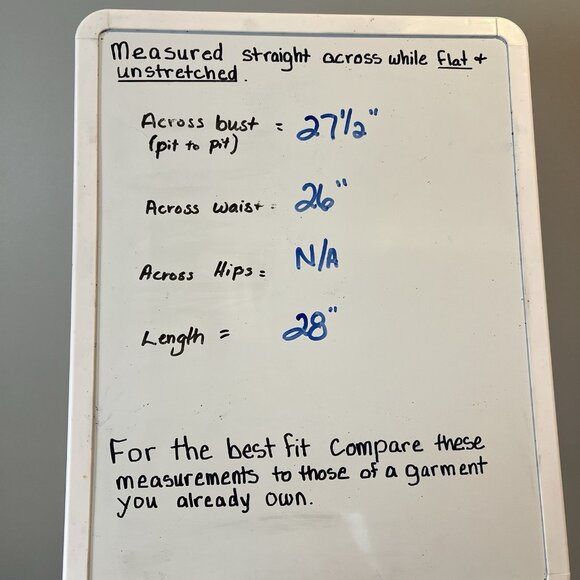 Measured straight across while flat +
unstretched.
Across bust = 27 1/2"
(pit to pit)
Across waist = 26"
Across Hips = N/A
Length = 28"
For the best fit Compare these
measurements to those of a garment
you already own.